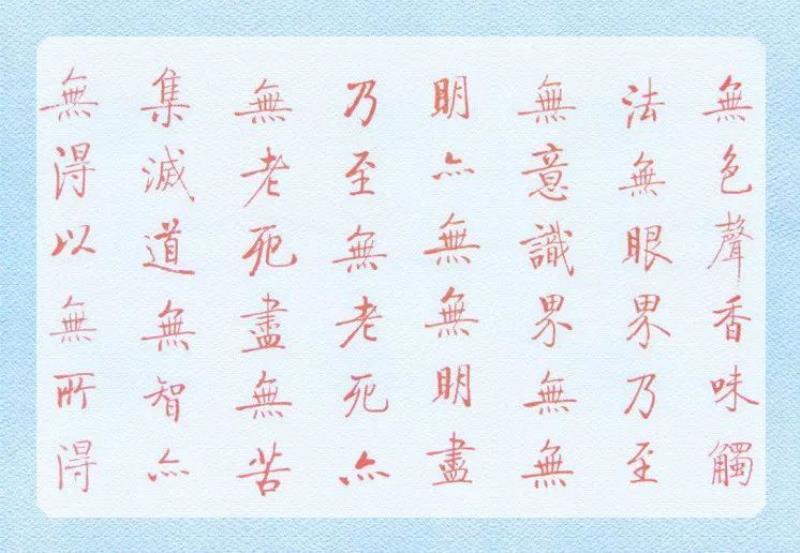 無色聲香味觸
法無眼界乃至
無意識界無無
明亦無無明盡
乃至無老死亦
無老死盡無苦
集滅道無智亦
無得以無所得